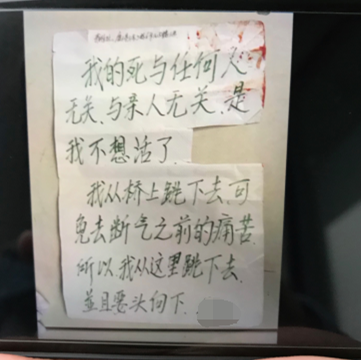 我的死与任何人
无关、与亲人无关、是
我不想活了、
我从桥上跳下去、可
免去断气之前的痛苦
所以、我从这里跳下去、
并且要头向下、